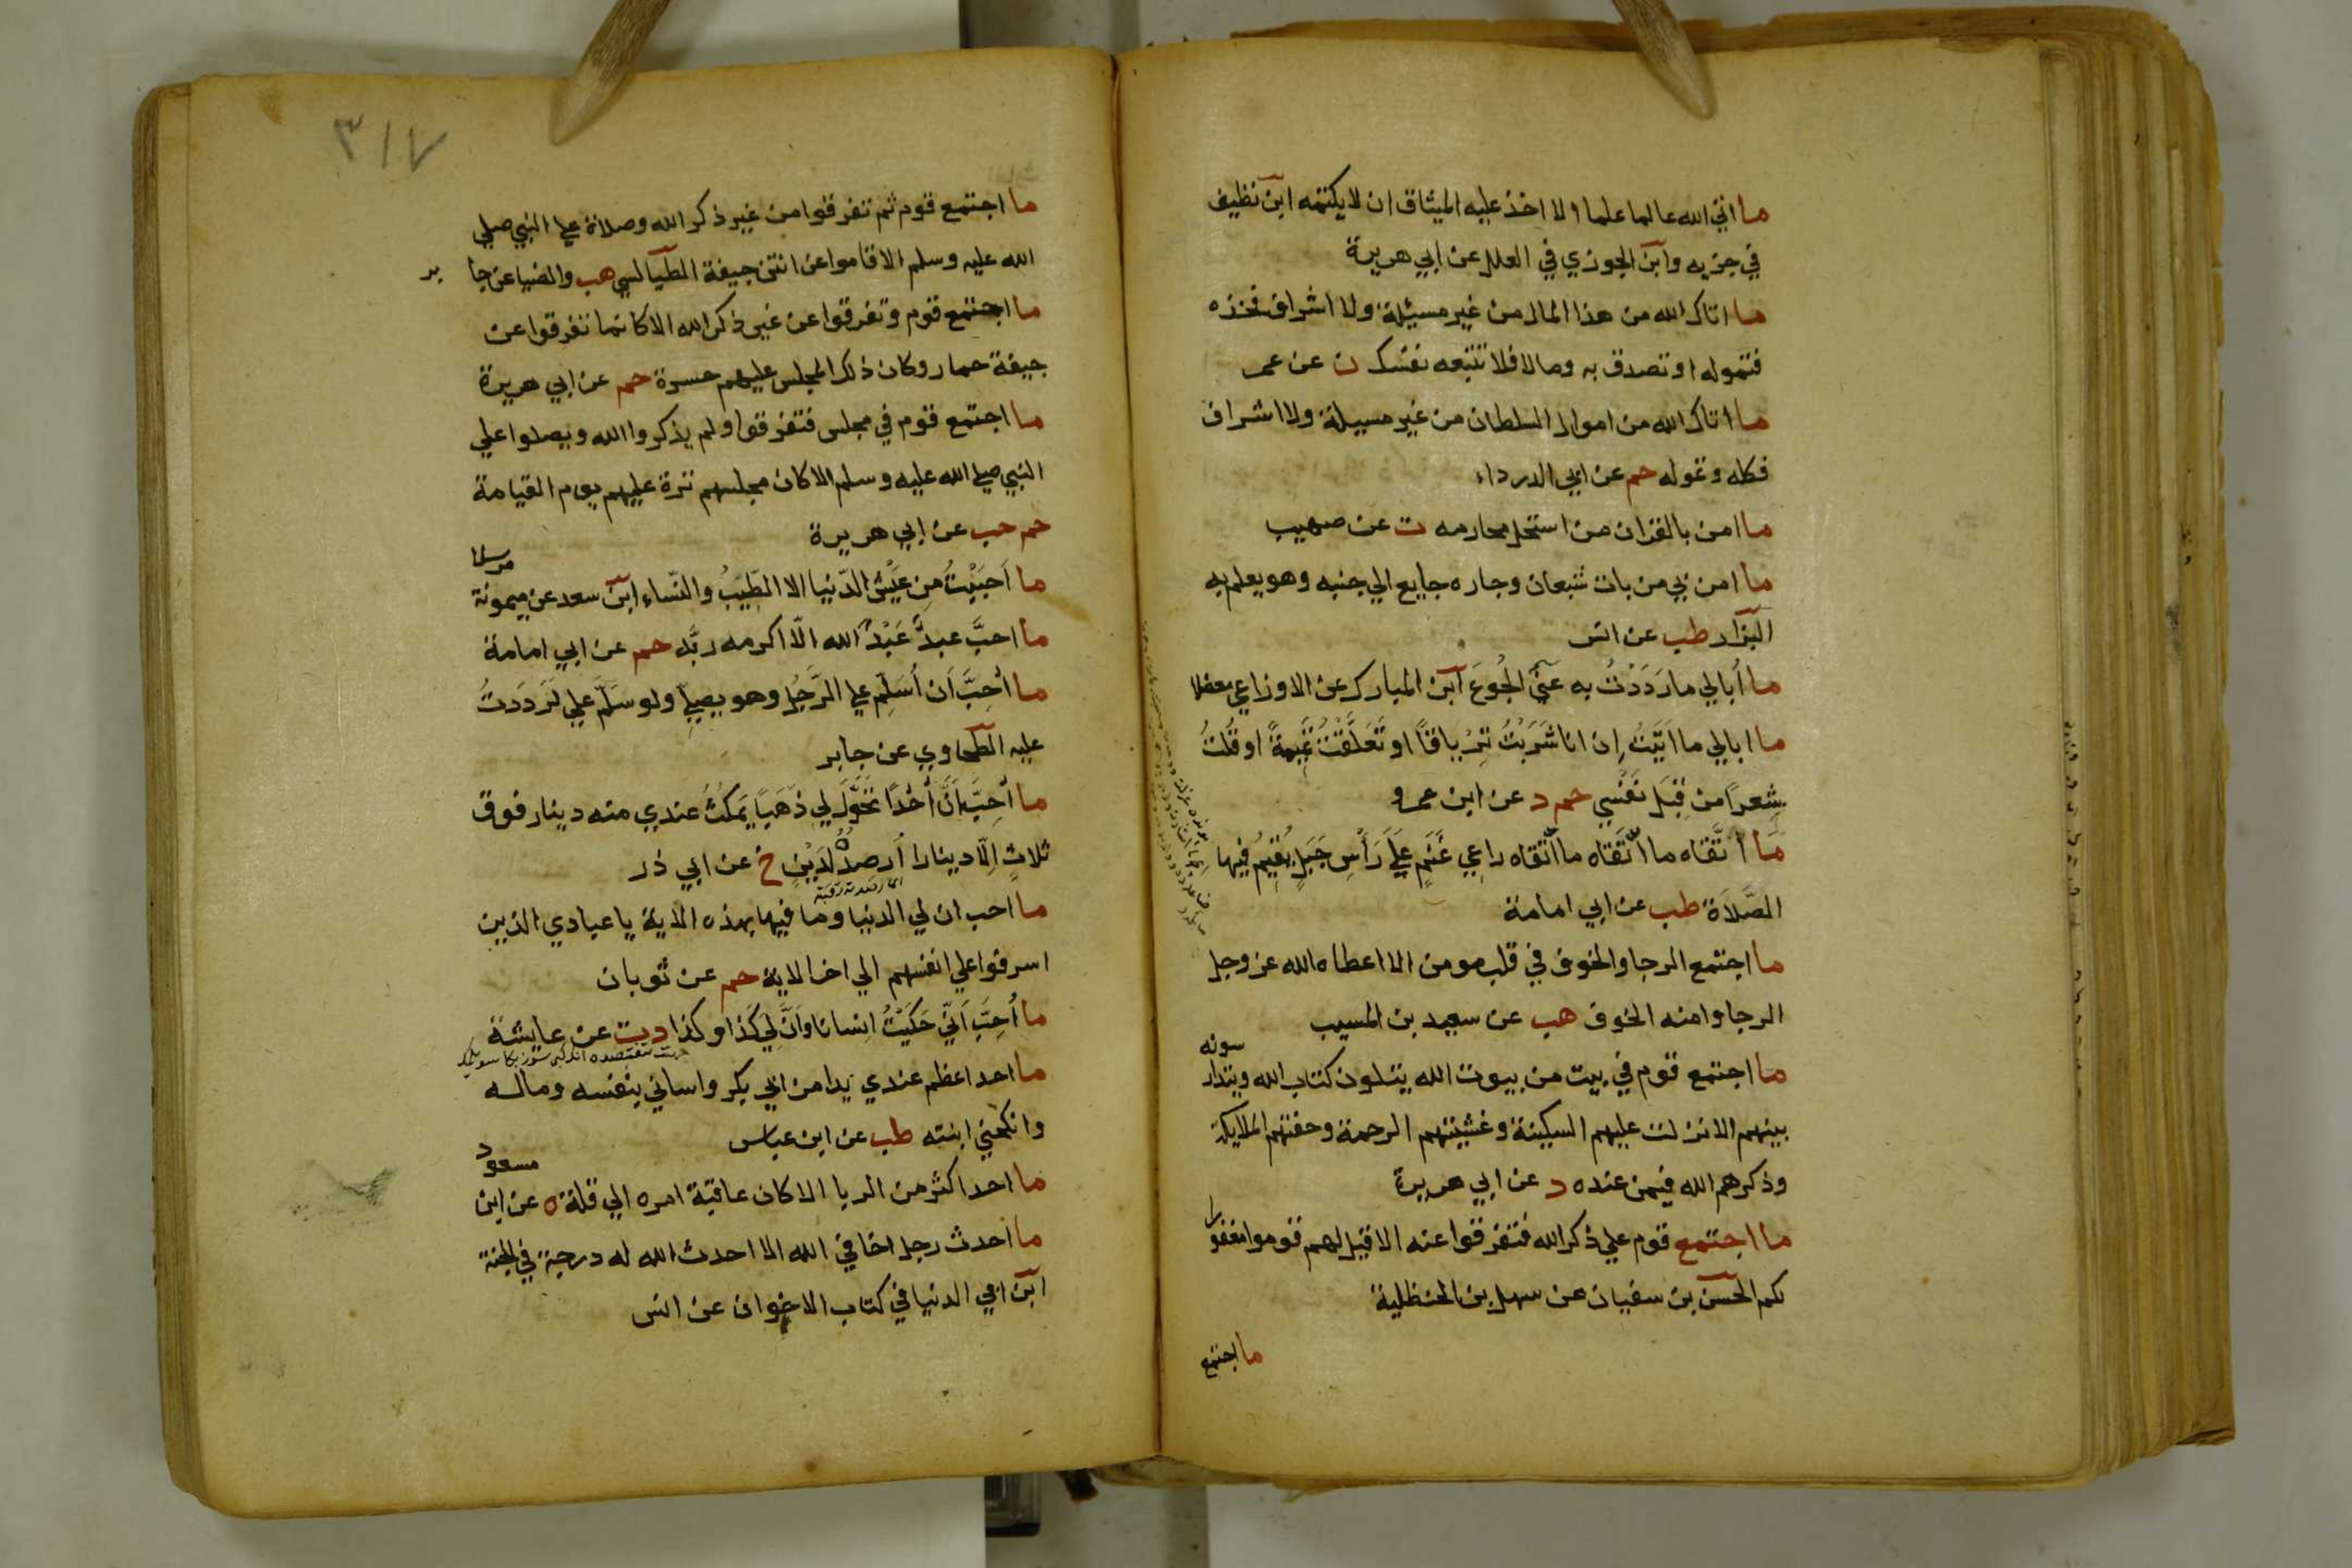 ما اتي الله عالما علما الا اخذ عليه الميثاق ان لا يكتمه ابن نظيف
في جزيه وابن الجوزي في العلل عن ابي هريرة
ما اتاك الله من هذا المال من غير مسيلة ولا اشراف فخذه
فتموله او تصدق به وما لا فلا تتبعه نفسك ن عن عمر
ما اتاك الله من اموال السلطان من غير مسيلة ولا اشراف
فكله وتموله حم عن ابي الدرداء
ما امن بالقران من استحل محارمه ت عن صهيب
ما امن بي من بات شبعان وجاره جايع الي جنبه وهو يعلم به
البزار طب عن انس
ما أبالي ما رَدَدْتُ به عَنّي الجُوعَ ابن المبارك عن الاوزاعي معضلا
ما ابالي ما اَتَيْتُ اِن انا شَرَبْتُ تِرْياقًا او تَعَلَّقْتُ تَمِيمَةً او قُلتُ
شِعرًا من قِبَلِ نَفْسي حم د عن ابن عمرو
مَا أَتَّقاه ما أتَّقاه ما أتَّقاه راعِي غَنَمٍ عَلَي رَأسِ جَبَلٍ يُقِيمُ فيها
الصَّلاَة طب عن ابي امامة
ما اجتمع الرجا والخوف في قلب مومن الا اعطاه الله عز وجل
الرجا وامنه الخوف هب عن سعيد بن المسيب
ما اجتمع قوم في بيت من بيوت الله يتلون كتاب الله ويتدار سونه
بينهم الا نزلت عليهم السكينة وغشيتهم الرحمة وحفتهم الملايكة
وذكرهم الله فيمن عنده د عن ابي هريرة
ما اجتمع قوم علي ذكر الله فتفرقوا عنه الا قيل لهم قوموا مغفورا
لكم الحسن بن سفيان عن سهل بن الحنظلية
ما اجتمع
٣١٧
ما اجتمع قوم ثم تفرقوا من غير ذكر الله وصلاة علي النبي صلي
الله عليه وسلم الا قاموا عن انتن جيفة الطيالسي هب والضيا عن جا بر
ما اجتمع قوم وتفرقوا عن غير ذكر الله الا كانما تفرقوا عن
جيفة حمار وكان ذلك المجلس عليهم حسرة حم عن ابي هريرة
ما اجتمع قوم في مجلس فتفرقوا ولم يذكروا الله ويصلوا علي
النبي صلي الله عليه وسلم الا كان مجلسهم ترة عليهم يوم القيامة
حم حب عن ابي هريرة
ما اَحبَبْتُ مِن عَيْشِ الدّنيا الا الطّيبُ والنّساءِ ابن سعد عن ميمونة مرسلا
ما احبَّ عبدٌ عَبْدًا لله الّا اكرمه ربَّه حم عن ابي امامة
ما أحِبَّ اَن أُسَلِّم علي الرَّجُلِ وهو يصلي ولو سَلَّم علي لَرَدَدتُ
عليه الطحاوي عن جابر
ما أحِبّ اَنَّ أُحُدًا تَحَوَّلَ لِي ذَهَباً يَمكُثُ عندي منه دينار فوق
ثلاثٍ اِلّا دينارا اُرصدُهُ لِدَيْنٍ خ عن ابي ذر
ما احب ان لي الدنيا وما فيها بهذه الاية يا عبادي الذين
اسرفوا علي انفسهم الي اخر الاية حم عن ثوبان
ما أُحِبّ اَنّي حَكَيْتُ اِنسانا وَاَنَّ لِي كَذا وكذا د ت عن عايشة
ما احد اعظم عندي يدا من ابي بكر واساني بنفسه وماله
وانكحني ابنته طب عن ابن عباس
ما احد اكثر من الربا الا كان عاقبة امره الي قلة ه عن ابن مسعود
ما احدث رجل اخا في الله الا احدث الله له درجة في الجنة
ابن ابي الدنيا في كتاب الاخوان عن انس